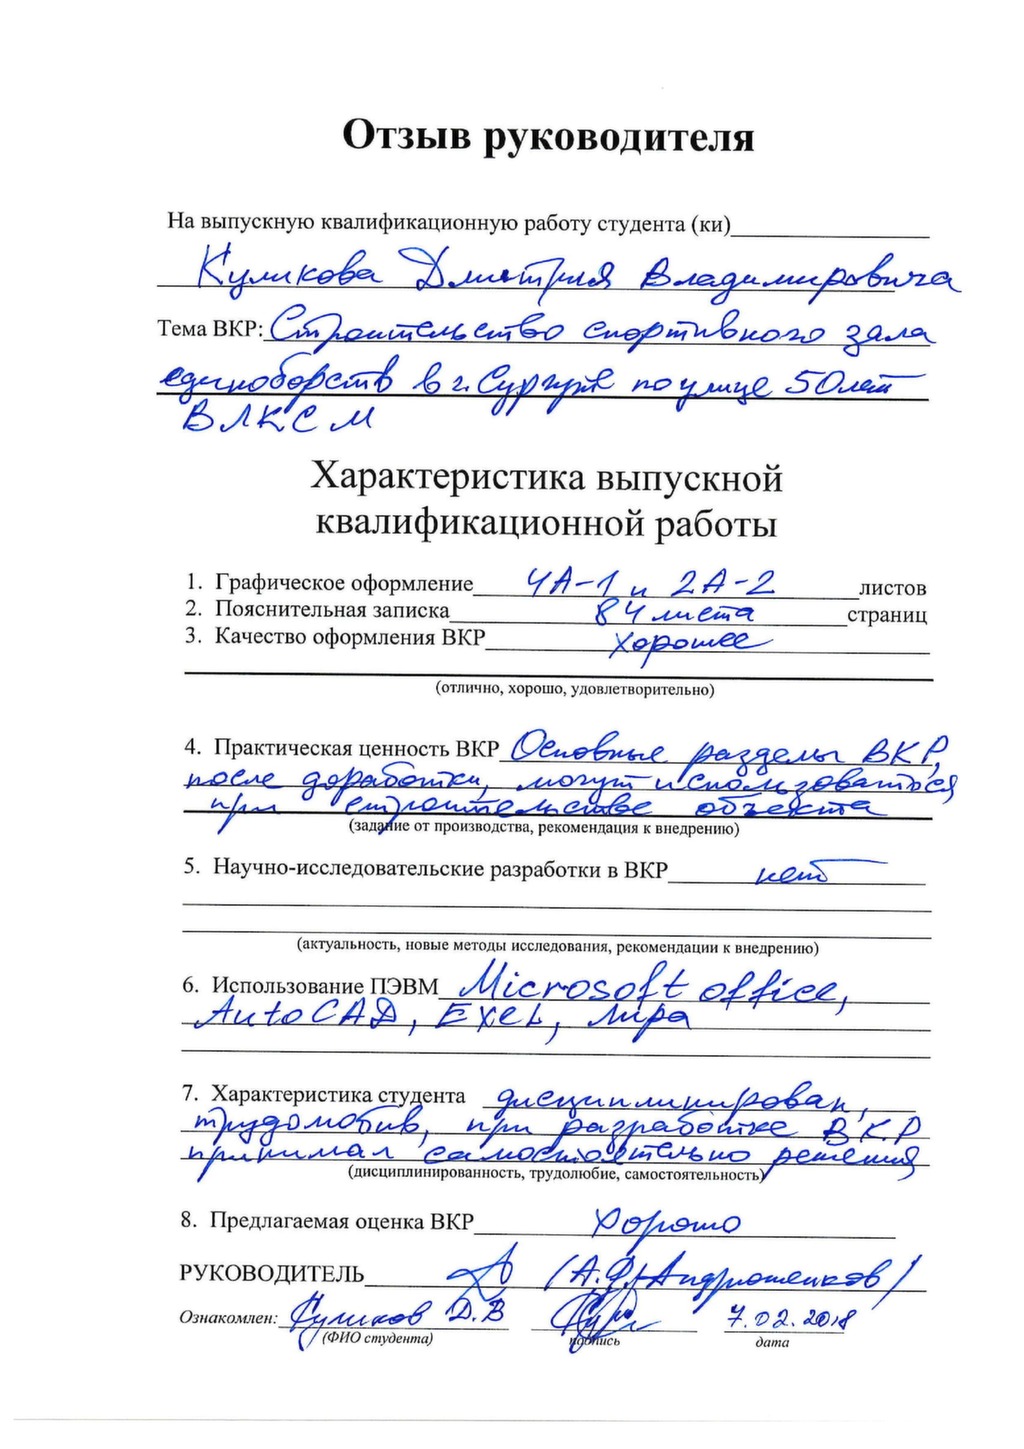 Отзыв руководителя
На выпускную квалификационную работу студента (ки)
Куликова Дмитрия Владимировича
Тема ВКР: Строительство спортивного зала
единоборств в г. Сургуте по улице 50 лет
ВЛКСМ
Характеристика выпускной
квалификационной работы
1. Графическое оформление 4А-1 и 2А-2 листов
2. Пояснительная записка 84 листа страниц
3. Качество оформления ВКР хорошее
(отлично, хорошо, удовлетворительно)
4. Практическая ценность ВКР Основные разделы ВКР,
после доработки, могут использоваться
при строительстве объекта
(задание от производства, рекомендация к внедрению)
5. Научно-исследовательские разработки в ВКР нет
(актуальность, новые методы исследования, рекомендации к внедрению)
6. Использование ПЭВМ Microsoft office,
AutoCAD, Exel, Лира
7. Характеристика студента дисциплинирован,
трудолюбив, при разработке ВКР
принимал самостоятельно решения
(дисциплинированность, трудолюбие, самостоятельность)
8. Предлагаемая оценка ВКР Хорошо
РУКОВОДИТЕЛЬ (А.Ф. Андрюшенков)
Ознакомлен: Куликов Д.В 7.02.2018
(ФИО студента) подпись дата